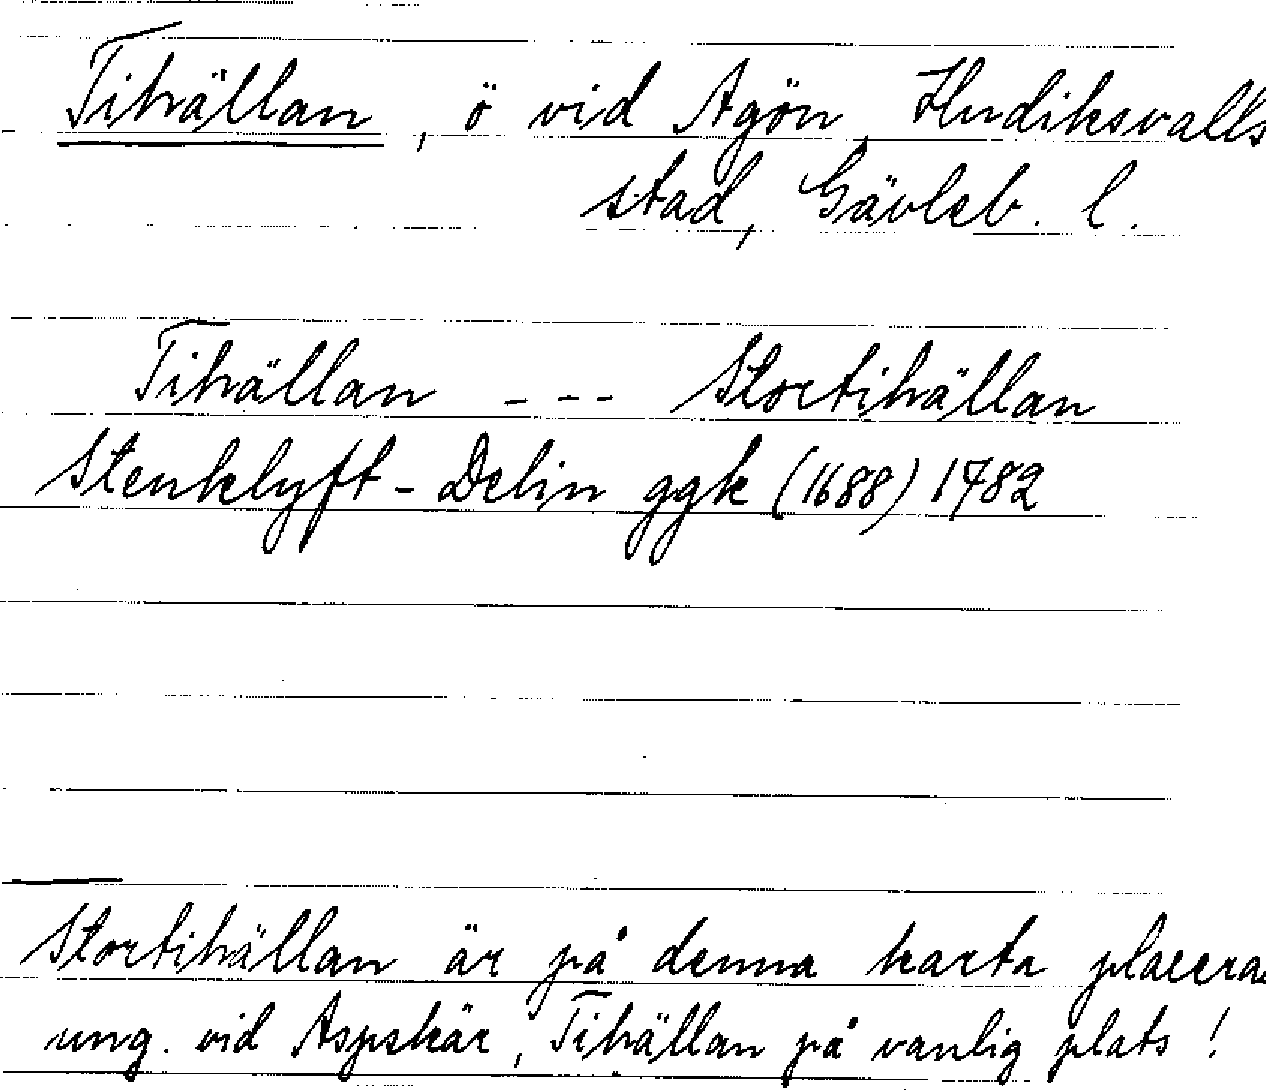 Tihällan, ö vid Agön, Hudiksvalls
stad, Gävleb. l.
Tihällan --- Stortihällan
Stenklyft - Delin ggk (1688) 1782
Stortihällan är på denna karta placera
ung. vid Aspskär, Tihällan på vanlig plats!